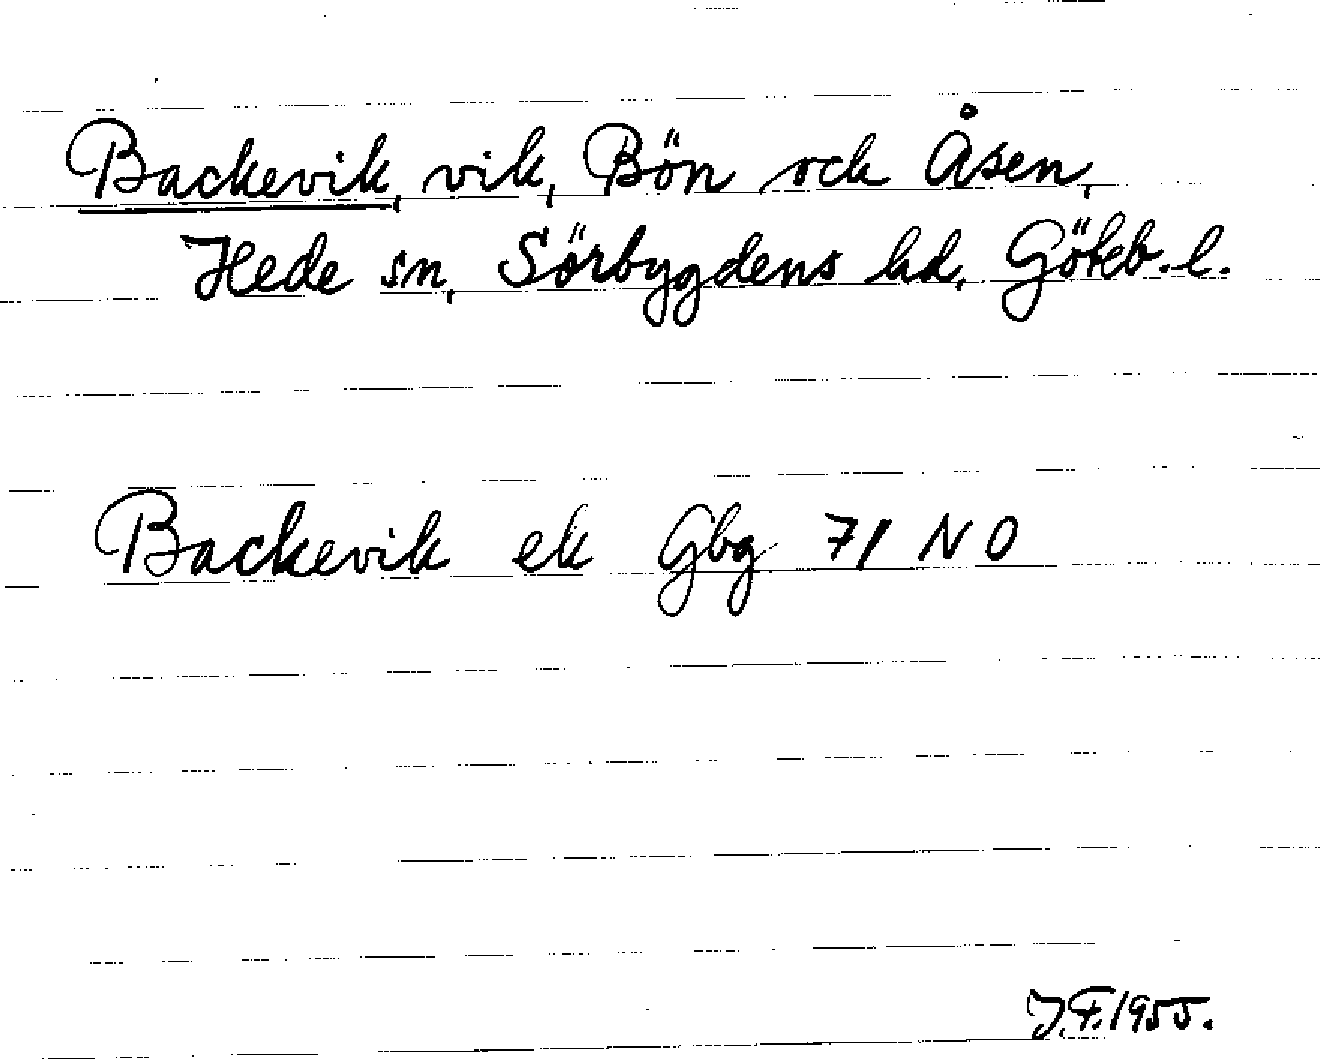 Backevik, vik, Bön och Åsen,
Hede sn, Sörbygdens hd, Göteb. l.
Backevik ek Gbg 71 NO
J.F. 1955.